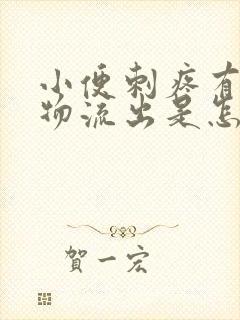 小便刺疼有
物流出是怎
賀一宏